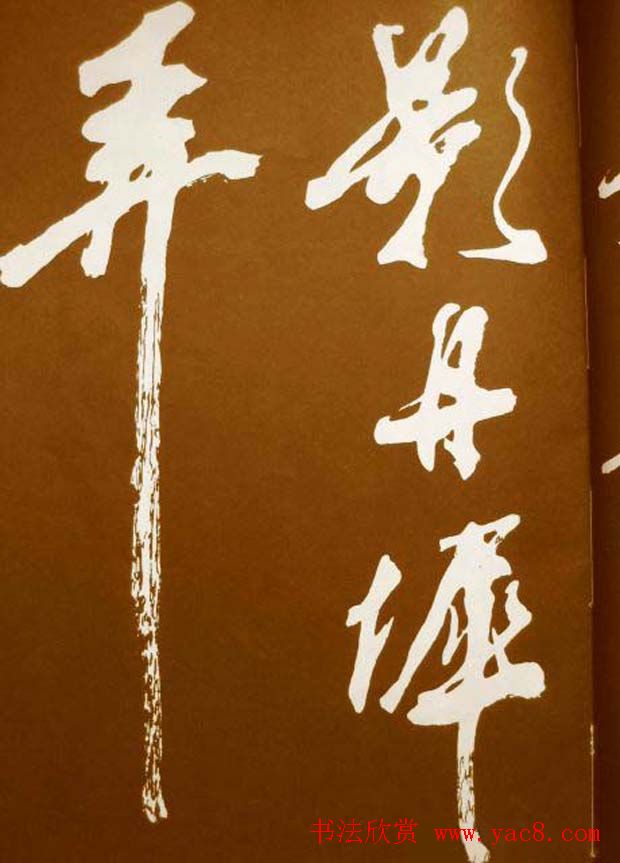 影丹墀
弄
书法欣赏 www.yac8.com